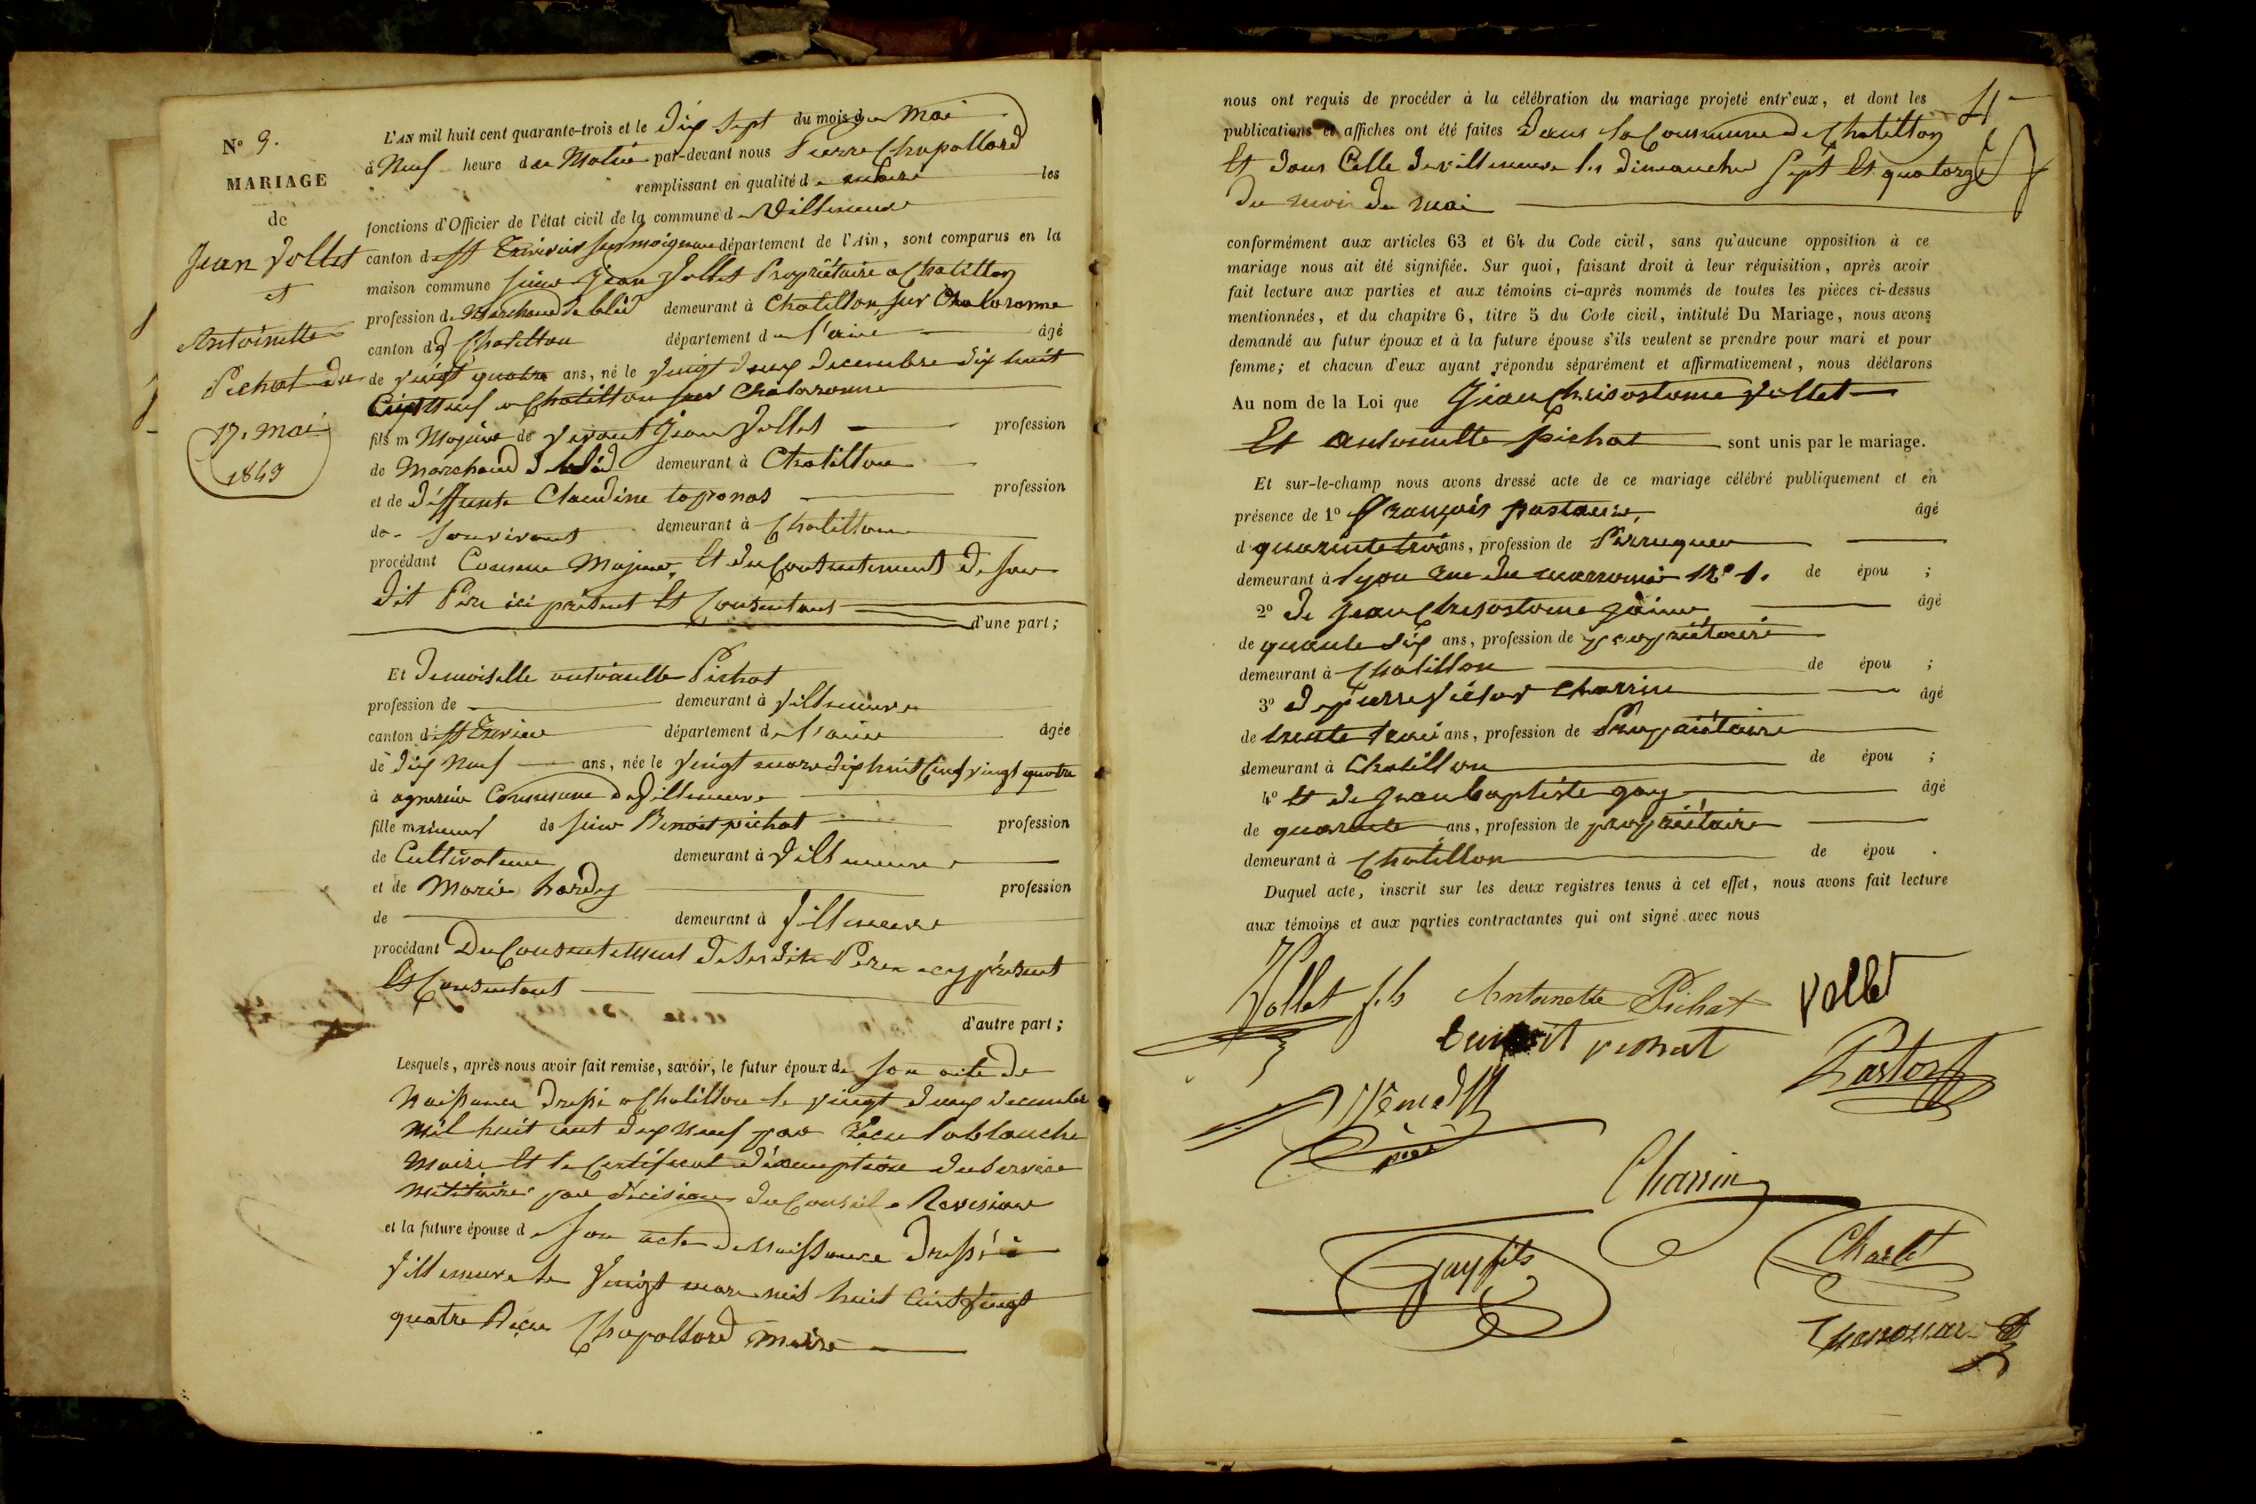 N° 9.
MARIAGE
de
Jean Vollet
et
Antoinette
Pichat du
17. mai
1843
L'AN mil huit cent quarante-trois et le dix sept du mois de Mai
à Neuf heure du Matin par-devant nous Pierre Chapollard
remplissant en qualité de maire les
fonctions d'Officier de l'état civil de la commune de Villeneuve
canton de St Trivier sur moignans département de l'Ain, sont comparus en la
maison commune sieur Jean Vollet Propriétaire a Chatillon
profession de Marchand de bléd demeurant à Chatillon sur Chalaronne
canton de Chatillon département de l'ain âgé
de vingt quatre ans, né le vingt deux decembre dix huit
Cent neuf a Chatillon sur Chalaronne
fils m Majeur de vivant Jean Vollet profession
de Marchand de bléd demeurant à Chatillon
et de déffunte Claudine toponas profession
de son vivant demeurant à Chatillon
procédant Comme Majeur et du Consentement de son
dit Pere ici présent Et Consentant
d'une part;
Et demoiselle antoinette Pichat
profession de demeurant à Villeneuve
canton de St Trivier département de l'ain âgée
de dix Neuf ans, née le vingt mars dix huit Cent vingt quatre
à agnerein Commune de Villeneuve
fille mineur de sieur Benoit pichat profession
de Cultivateur demeurant à Villeneuve
et de Marie hardy profession
de demeurant à Villeneuve
procédant Du Consentement de ses dits Pere icy présent
Et Consentant
d'autre part;
Lesquels, après nous avoir fait remise, savoir, le futur époux de son acte de
Naissance dressé a Chatillon le vingt deux decembre
mil huit cent dix neuf par Lablanche
Maire Et le Certificat d'exemption du Service
Militaire par décision du Conseil de Revision
et la future épouse de son acte de Naissance dressé à
Villeneuve le vingt mars mil huit Cent vingt
quatre Chapollard Maire
4
nous ont requis de procéder à la célébration du mariage projeté entr'eux, et dont les
publications et affiches ont été faites Dans la Commune de Chatillon
Et dans Celle de villeneuve les dimanches Sept Et quatorze
du mois de mai
conformément aux articles 63 et 64 du Code civil, sans qu'aucune opposition à ce
mariage nous ait été signifiée. Sur quoi, faisant droit à leur réquisition, après avoir
fait lecture aux parties et aux témoins ci-après nommés de toutes les pièces ci-dessus
mentionnées, et du chapitre 6, titre 5 du Code civil, intitulé Du Mariage, nous avons
demandé au futur époux et à la future épouse s'ils veulent se prendre pour mari et pour
femme; et chacun d'eux ayant répondu séparément et affirmativement, nous déclarons
Au nom de la Loi que Jean Chrisostome Vollet
Et antoinette pichat sont unis par le mariage.
Et sur-le-champ nous avons dressé acte de ce mariage célébré publiquement et en
présence de 1° François pastour âgé
d quarante trois ans, profession de Perruquer
demeurant à lyon rue du marronier N° 1. de épou ;
2° de Jean Chrisostome âgé
de ans, profession de propriétaire
demeurant à Chatillon de épou ;
3° de pierre Victor Charrin âgé
de trente trois ans, profession de Propriétaire
demeurant à Chatillon de épou ;
4° Et de Jean baptiste gay âgé
de quarante ans, profession de propriétaire
demeurant à Chatillon de épou .
Duquel acte, inscrit sur les deux registres tenus à cet effet, nous avons fait lecture
aux témoins et aux parties contractantes qui ont signé avec nous
Vollet fils Antoinette Pichat Vollet
benoit pichat
Charrin
Gay fils
Charlet